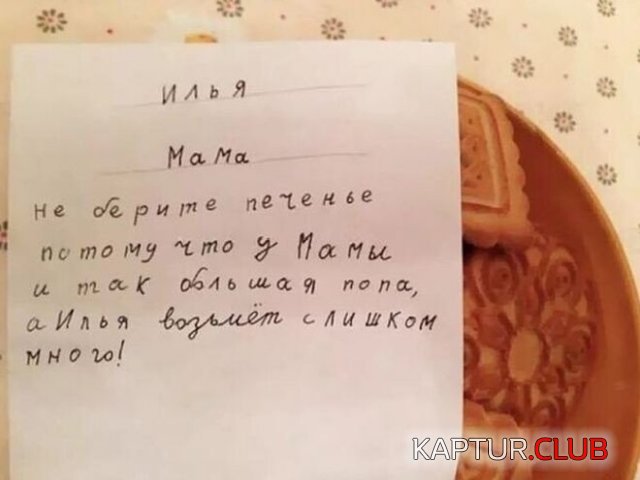 Илья
Мама
не берите печенье
потому что у Мамы
и так большая попа,
а Илья возьмёт слишком
много!
KAPTUR.CLUB